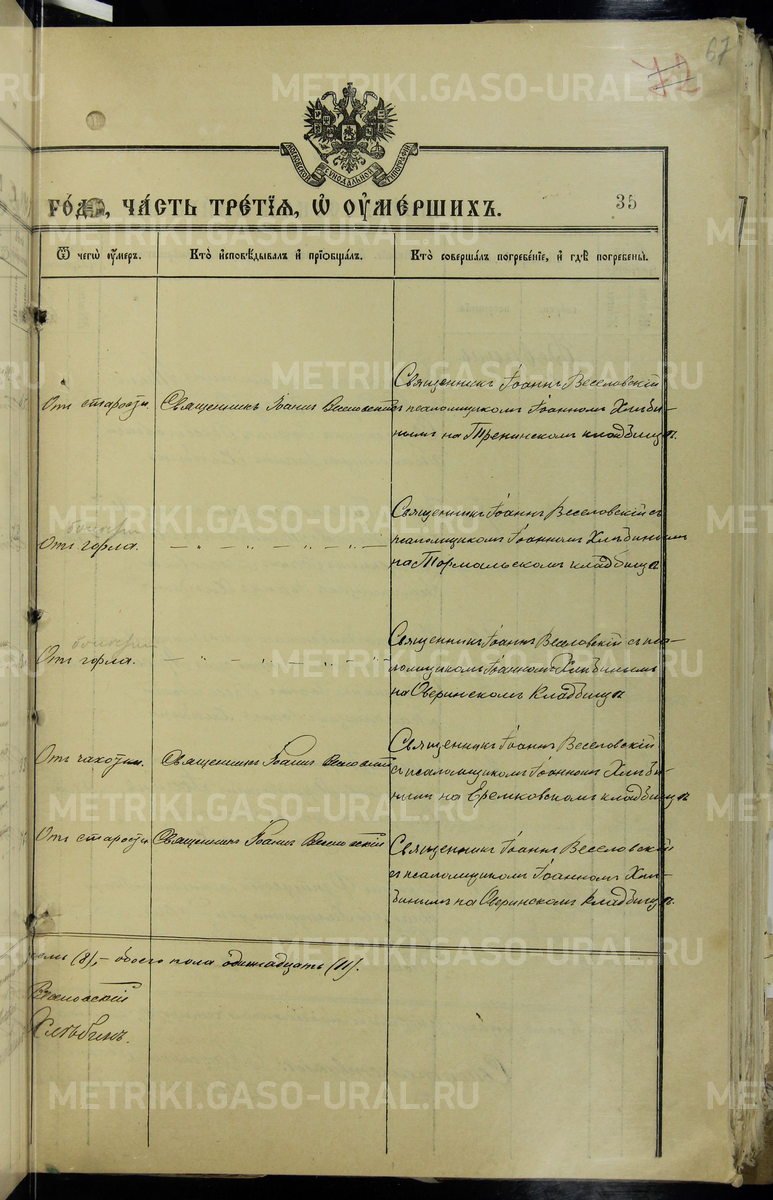 67
72
МОСКОВСКОЙ СѴНОДАЛЬНОЙ ТИПОГРАФІИ
го́да, ча́сть тре́тїѧ, ѽ оу҆ме́ршихъ.
35
Ѿ чегѡ̀ оу҆́меръ.
Кто̀ и҆сповѣ́дывалъ и҆ прїѡбща́лъ.
Кто̀ соверша́лъ погребе́нїе, и҆ гдѣ̀ погребены̀.
Отъ старости.
Священникъ Іоаннъ Веселовскій
Священникъ Іоаннъ Веселовскій
съ псаломщикомъ Іоанномъ Хлѣби-
нымъ на Тренинскомъ кладбищѣ.
Отъ горла.
— „ — „ — „ — „ —
Священникъ Іоаннъ Веселовскій съ
псаломщикомъ Іоанномъ Хлѣбинымъ
на кладбищѣ
Отъ горла.
— „ — „ — „ — „ —
Священникъ Іоаннъ Веселовскій съ пса-
ломщикомъ Іоанномъ Хлѣбинымъ
на Оверинскомъ кладбищѣ
Отъ чахотки.
Священникъ Іоаннъ Веселовскій
Священникъ Іоаннъ Веселовскій
съ псаломщикомъ Іоанномъ Хлѣби-
нымъ на Еремковскомъ кладбищѣ
Отъ старости.
Священникъ Іоаннъ Веселовскій
Священникъ Іоаннъ Веселовскій
съ псаломщикомъ Іоанномъ Хлѣ-
бинымъ на Оверинскомъ кладбищѣ.
(8), – обоего пола одиннадцать (11).
Веселовскій
Хлѣбинъ.
METRIKI.GASO-URAL.RU